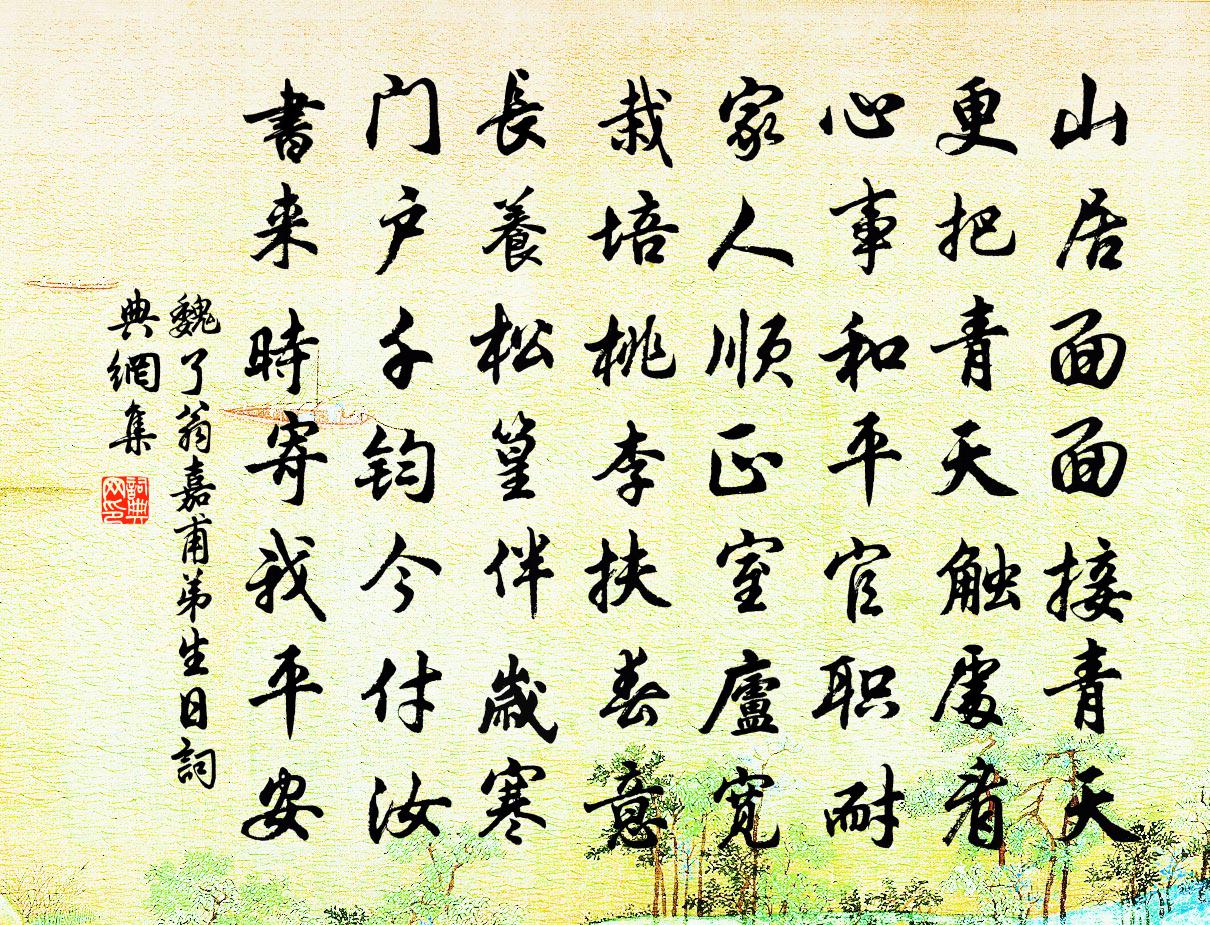 山居面面接青天
更把青天触處看
心事和平官职耐
家人顺正室廬宽
栽培桃李扶春意
長養松篁伴歲寒
门户千钧今付汝
書来時寄我平安
魏了翁嘉甫弟生日詞
典網集
詞典
网印